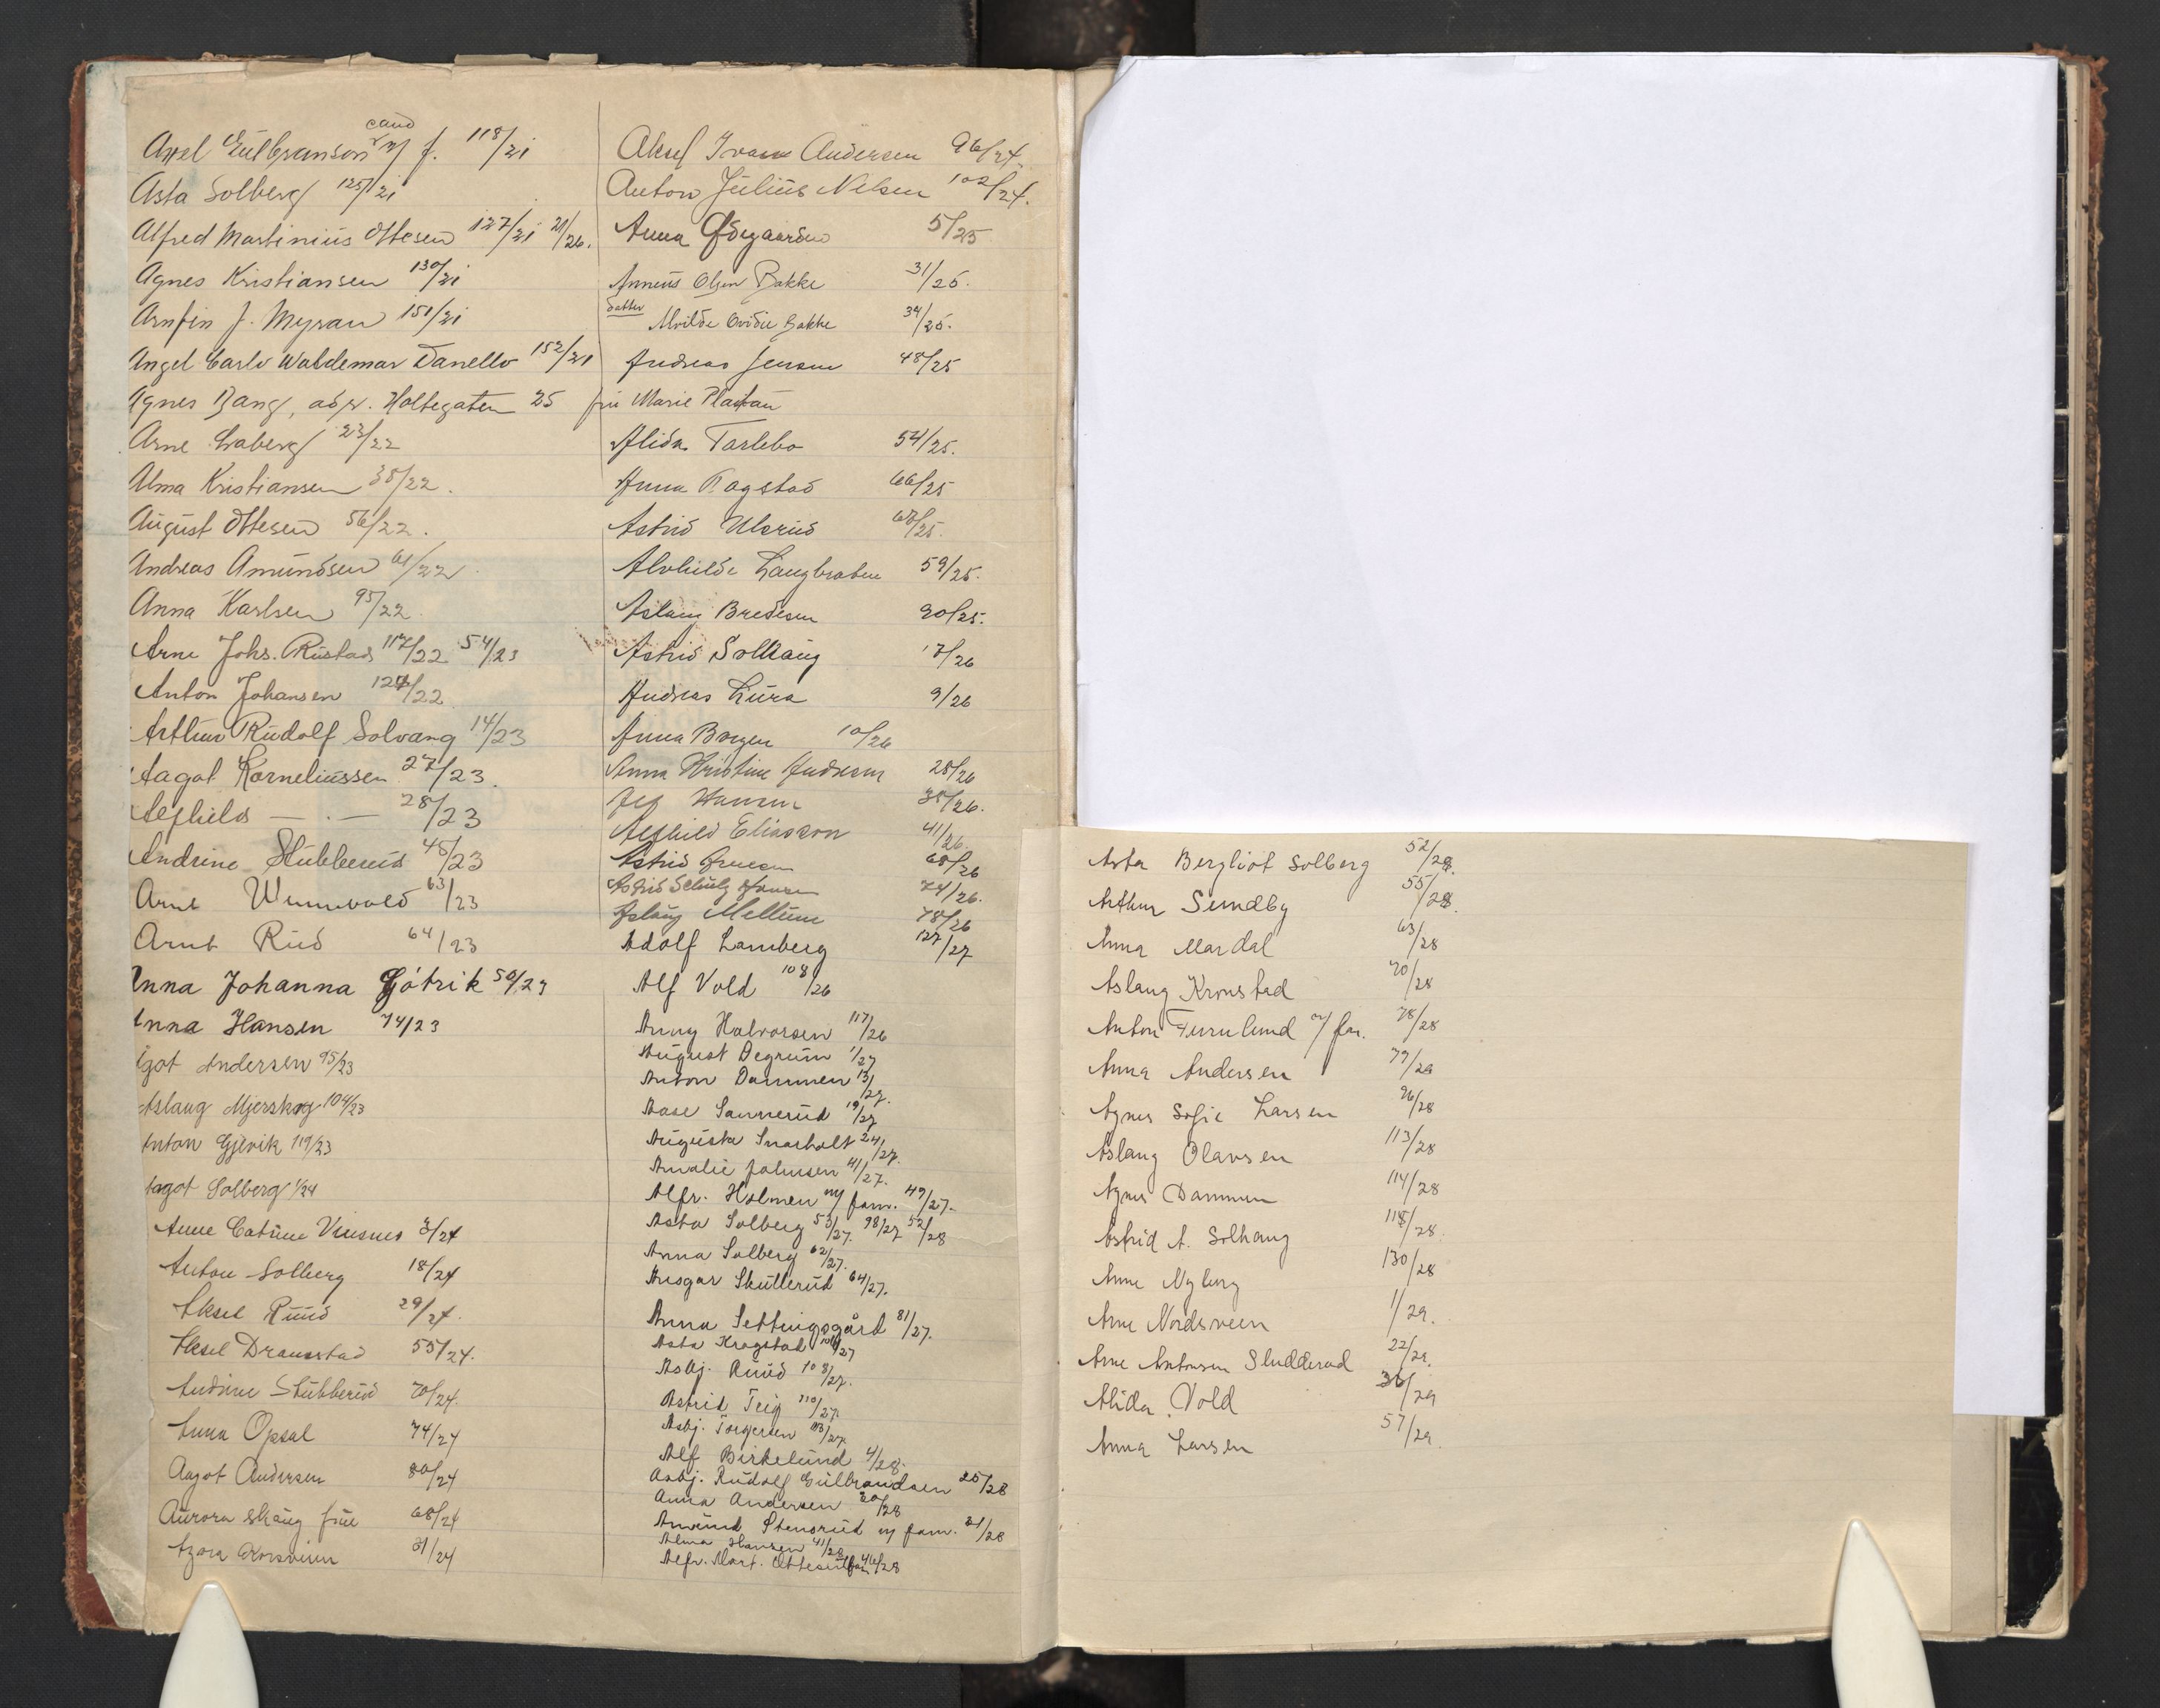 Axel Gulbranson cand m/ f. 118/21
Asta Solberg 125/21
Alfred Martinius Ottesen 127/21 21/26.
Agnes Kristiansen 130/21
Arnfin J. Myran 151/21
Angel Carlo Waldemar Danello 152/21
Agnes Bang, adr. Holtegaten 25 fru Marie Plathan
Arne Laberg 23/22
Alma Kristiansen 38/22.
August Ottesen 56/22.
Andreas Amundsen 61/22
Anna Karlsen 95/22
Arne Johs. Rustad 117/22 54/23
Anton Johansen /22
Arthur Rudolf Solvang 14/23
Aagot Korneliussen 27/23.
Alfhild — . — 28/23
Andrine Stubberud 48/23
Arne Wennevold 63/23
Arnt Rud 64/23
Anna Johanna Gjötrik 50/23
Anna Hansen 74/23
Agot Andersen 95/23
Aslaug Mjerskog 104/23
Anton Gjevik 119/23
Aagot Solberg 1/24
Anne Catrine Vinsnes 3/24
Anton Solberg 18/24
Aksel Ruud 29/24.
Aksel Dramstad 55/24.
Andrine Stubberud 70/24.
Anna Opsal 74/24
Aagot Andersen 80/24
Aurora Skaug frue 68/24
Azora Korsveien 31/24
Aksel Ivan Andersen 96/24.
Anton Julius Nilsen 102/24.
Anna Ødegaarden 5/25
Anneus Olsen Bakke 31/25.
datter Alvilde Ovidie Bakke 34/25.
Andreas Jensen 48/25
Alida Tarlebo 54/25.
Anna Rogstad 66/25
Astrid Ulsrud /25.
Alvhilde Langbraten 59/25.
Aslaug Bredesen 90/25.
Astrid Solhaug 7/26
Andreas Lura 9/26
Anna Borgen 10/26
Anna Kristine Andresen 28/26
Alf Hansen 38/26.
Alfhild Eliasson 41/26.
Astrid Jensen 68/26
Astrid Schulz Hansen 74/26.
Aslaug Mellum 78/26
Adolf Lamberg 127/27
Alf Vold 108/26
Anny Halvorsen 117/26
August Degrum 1/27
Anton Dammen 13/27.
Aase Sannerud 19/27
Augusta Snarholt 24/27.
Amalie Johnsen 41/27.
Alfr. Holmen m/ fam. 49/27.
Asta Solberg 53/27. 98/27 52/28
Anna Solberg 62/27.
Ansgar Skullerud 64/27.
Anna Settingsgård 81/27.
Asta Krogstad /27
Asbj. Ruud 108/27.
Astrid Teig 110/27.
Asbj. Torgersen 113/27.
Alf Birkelund 4/28.
Asbj. Rudolf Gulbrandsen 25/28
Anna Andersen 30/28
Amund Stensrud m/ fam. 31/28
Alma Hansen 41/28
Alfr. Mart. Ottesen m/fam 46/28
Asta Bergliot Solberg 52/28.
Arthur Sundby 55/28.
Anna Mardal 63/28
Aslaug Kronstad 70/28
Anton Furulund m/ fam. 78/28
Anna Andersen 79/28
Agnes Sofie Larsen 96/28
Aslaug Olavsen 113/28
Agnes Dammen 114/28
Astrid A. Solhaug 118/28.
Anne Nyberg 130/28
Arne Nordsveen 1/29.
Arne Antonsen Sludderud 22/29.
Alida Vold 36/29
Anna Larsen 57/29.